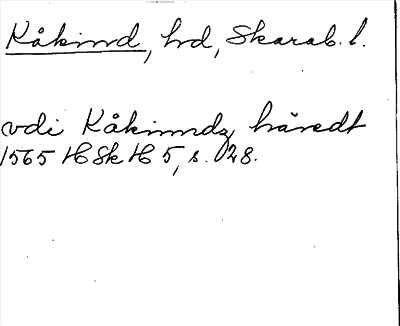 Kåkind, hd, Skarab. l.
vdi Kåkinndz häredt
1565 HSkH 5, s. 28.